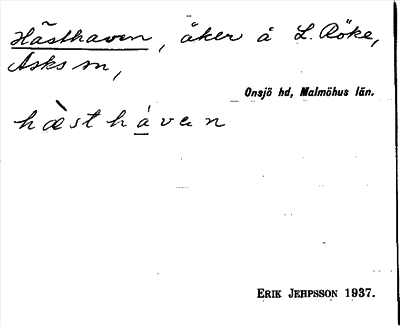 Hästhaven, åker å L. Röke,
Asks sn,
Onsjö hd, Malmöhus län.
hæ̀st hávan
ERIK JEHPSSON 1937.